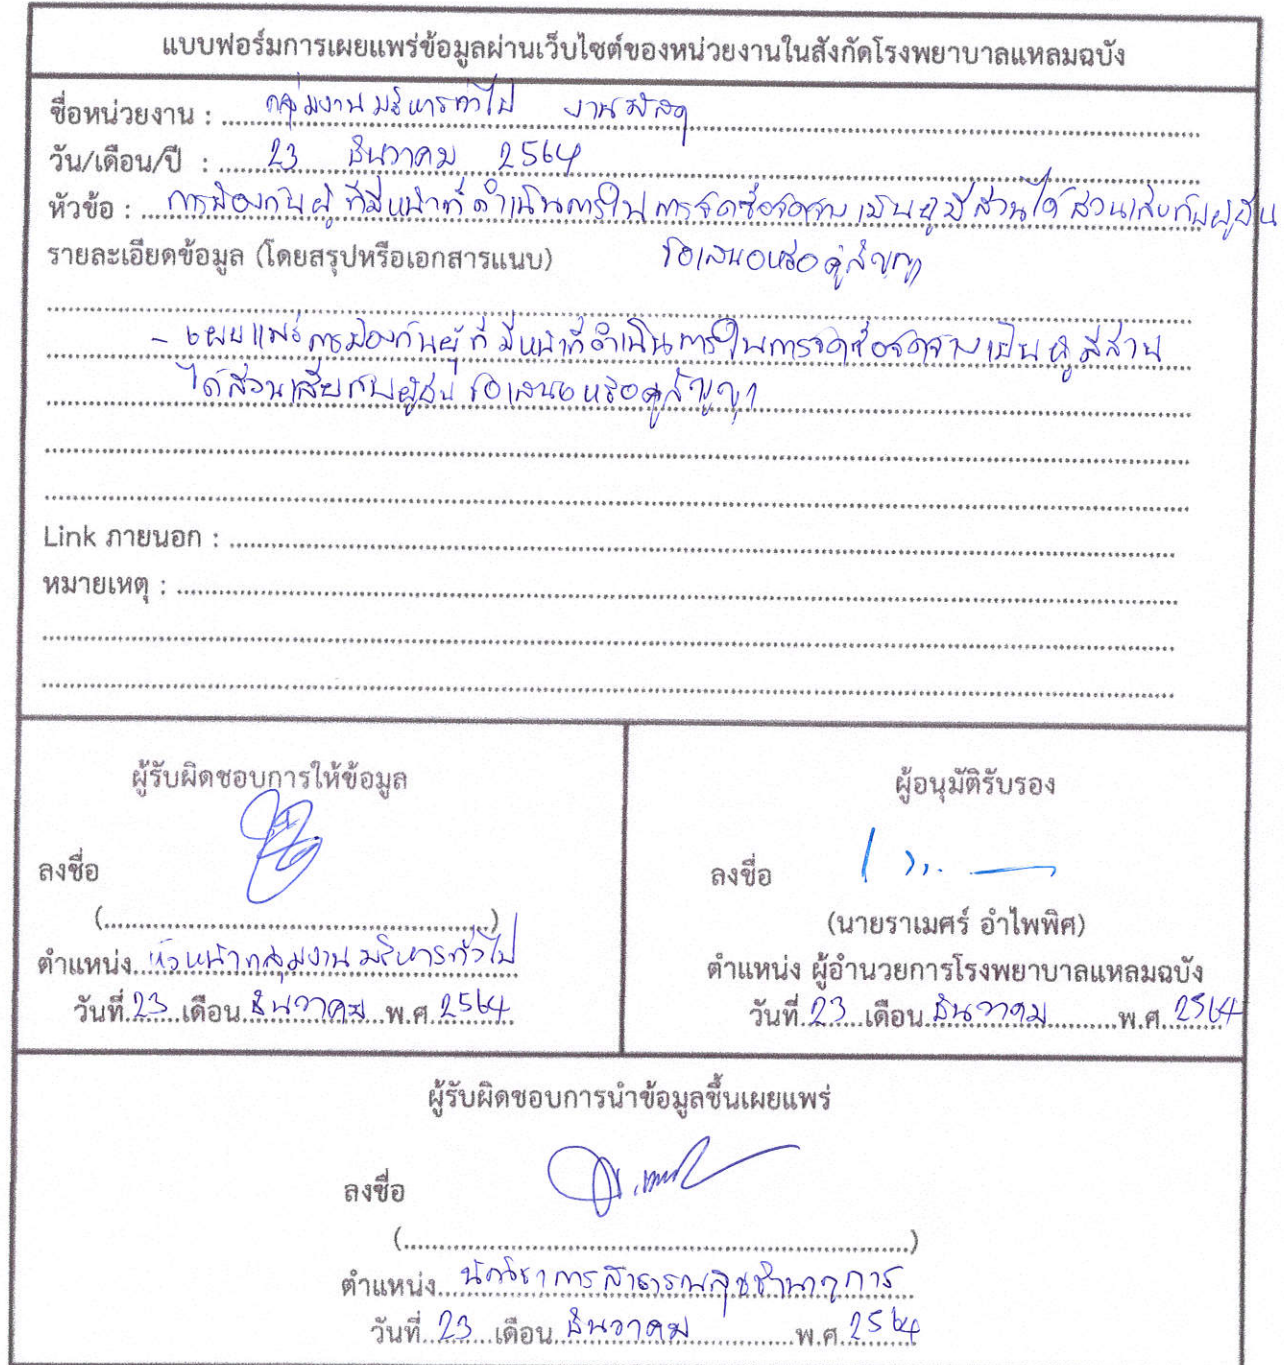 แบบฟอร์มการเผยแพร่ข้อมูลผ่านเว็บไซต์ของหน่วยงานในสังกัดโรงพยาบาลแหลมฉบัง
ชื่อหน่วยงาน : กลุ่มงานบริหารทั่วไป งานพัสดุ
วัน/เดือน/ปี : 23 ธันวาคม 2564
หัวข้อ : การป้องกันผู้ที่มีหน้าที่ดำเนินการในการจัดซื้อจัดจ้าง เป็นผู้มีส่วนได้ส่วนเสียกับผู้ยื่น
รายละเอียดข้อมูล (โดยสรุปหรือเอกสารแนบ) ข้อเสนอหรือคู่สัญญา
- เผยแพร่การป้องกันผู้ที่มีหน้าที่ดำเนินการในการจัดซื้อจัดจ้างเป็นผู้มีส่วน
ได้ส่วนเสียกับผู้ยื่นข้อเสนอหรือคู่สัญญา
Link ภายนอก :
หมายเหตุ :
ผู้รับผิดชอบการให้ข้อมูล
ลงชื่อ
(..................)
ตำแหน่ง หัวหน้ากลุ่มงานบริหารทั่วไป
วันที่ 23 เดือน ธันวาคม พ.ศ. 2564
ผู้อนุมัติรับรอง
ลงชื่อ
(นายราเมศร์ อำไพพิศ)
ตำแหน่ง ผู้อำนวยการโรงพยาบาลแหลมฉบัง
วันที่ 23 เดือน ธันวาคม พ.ศ. 2564
ผู้รับผิดชอบการนำข้อมูลขึ้นเผยแพร่
ลงชื่อ
(..................)
ตำแหน่ง นักวิชาการสาธารณสุขชำนาญการ
วันที่ 23 เดือน ธันวาคม พ.ศ. 2564